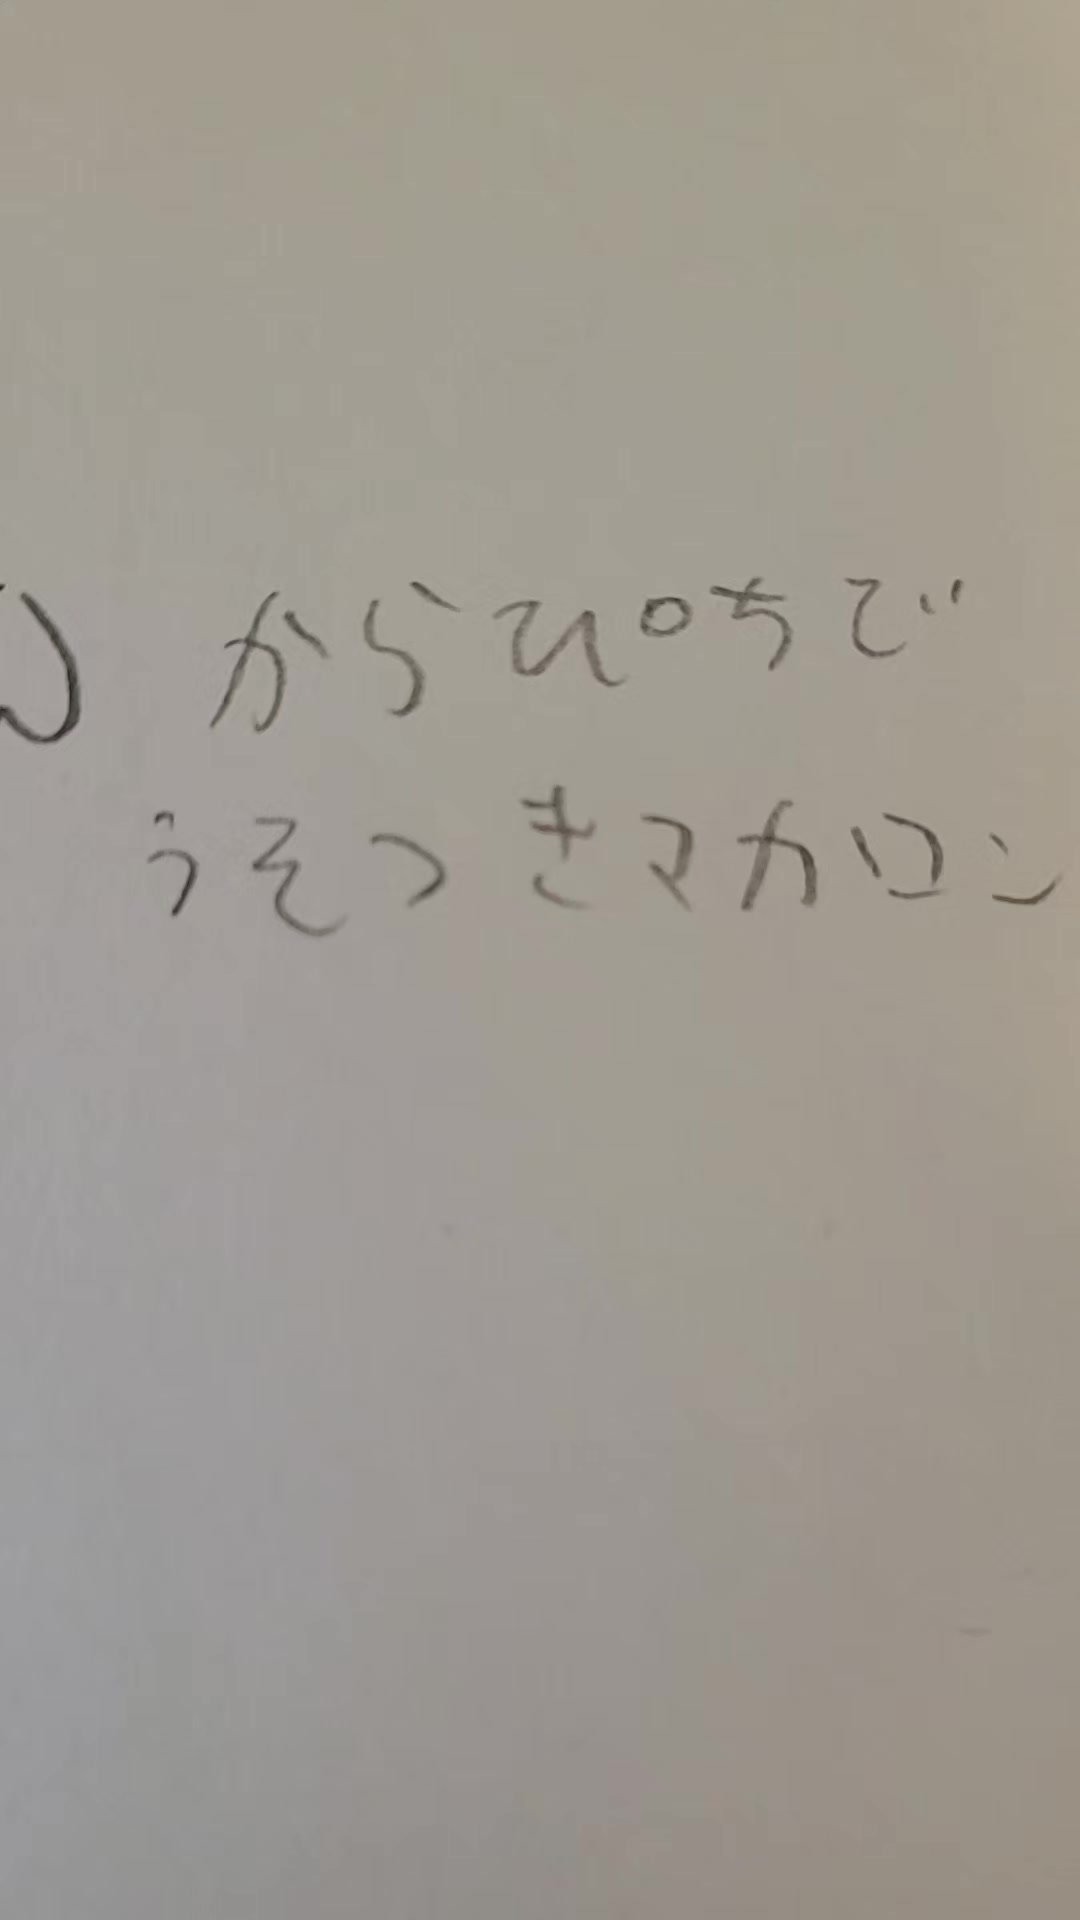 からぴちで
うそつきマカロン